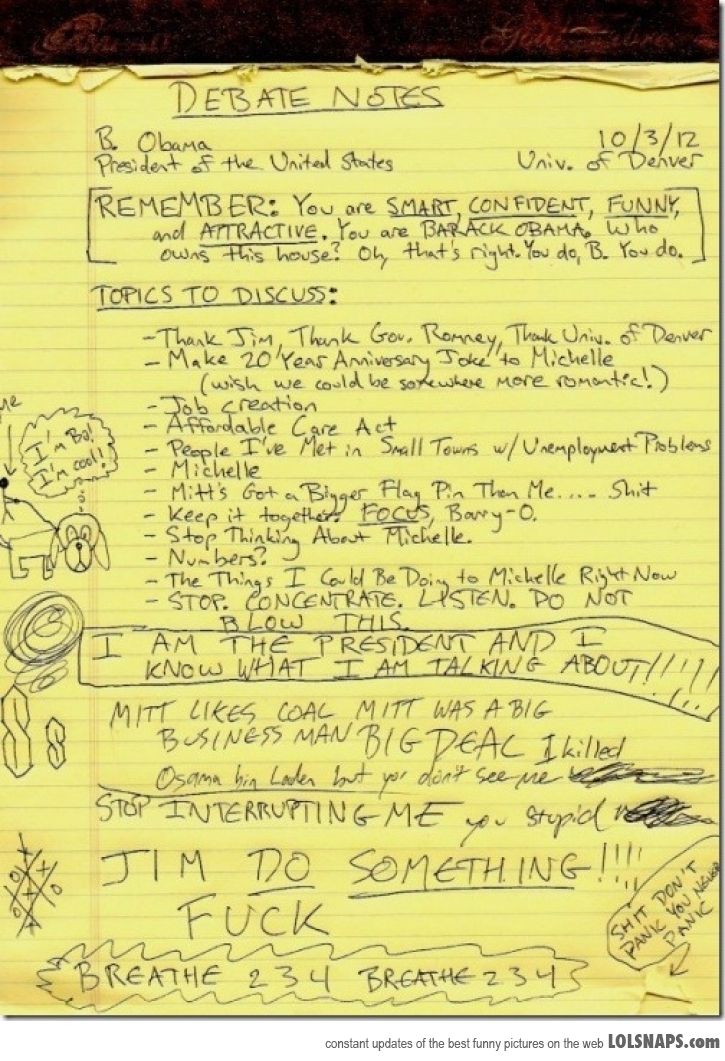 DEBATE NOTES
B. Obama 10/3/12
President of the United States Univ. of Denver
REMEMBER: You are SMART, CONFIDENT, FUNNY,
and ATTRACTIVE. You are BARACK OBAMA. Who
owns this house? Oh, that's right. You do, B. You do.
TOPICS TO DISCUSS:
- Thank Jim, Thank Gov. Romney, Thank Univ. of Denver
- Make 20 Year Anniversary Joke to Michelle
(wish we could be somewhere more romantic!)
- Job creation
- Affordable Care Act
- People I've Met in Small Towns w/ Unemployment Problems
- Michelle
- Mitt's Got a Bigger Flag Pin Then Me.... Shit
- Keep it together. FOCUS, Barry-O.
- Stop Thinking About Michelle.
- Numbers?
- The Things I Could Be Doing to Michelle Right Now
- STOP. CONCENTRATE. LISTEN. DO NOT
BLOW THIS.
me
I'm Bo!
I'm cool!
I AM THE PRESIDENT AND I
KNOW WHAT I AM TALKING ABOUT!!!!!
MITT LIKES COAL MITT WAS A BIG
BUSINESS MAN BIG DEAL I killed
Osama bin Laden but you don't see me
STOP INTERRUPTING ME you stupid
JIM DO SOMETHING!!!!
FUCK
SHIT DON'T
PANIC YOU NEVER
PANIC
BREATHE 2 3 4 BREATHE 2 3 4
constant updates of the best funny pictures on the web LOLSNAPS.com